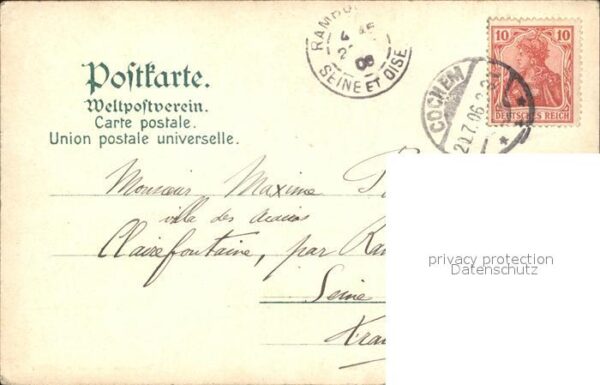 Postkarte.
Weltpostverein.
Carte postale.
Union postale universelle.
RAMBO
4 45
2
06
SEINE ET OISE
COCHEM
20.7.06
10 10
DEUTSCHES REICH
Monsieur Maxime
villa des
Clairefontaine, par Ram
Seine
Fran
privacy protection
Datenschutz